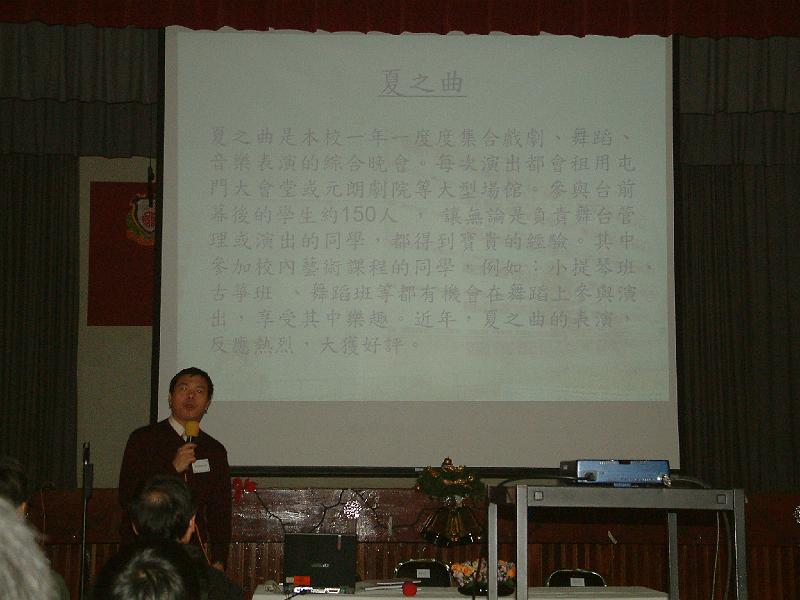 夏之曲
夏之曲是本校一年一度度集合戲劇、舞蹈、
音樂表演的綜合晚會。每次演出都會租用屯
門大會堂或元朗劇院等大型場館。參與台前
幕後的學生約150人 , 讓無論是負責舞台管
理或演出的同學，都得到寶貴的經驗。其中
參加校內藝術課程的同學，例如：小提琴班、
古箏班 、舞蹈班等都有機會在舞蹈上參與演
出，享受其中樂趣。近年，夏之曲的表演，
反應熱烈，大獲好評。